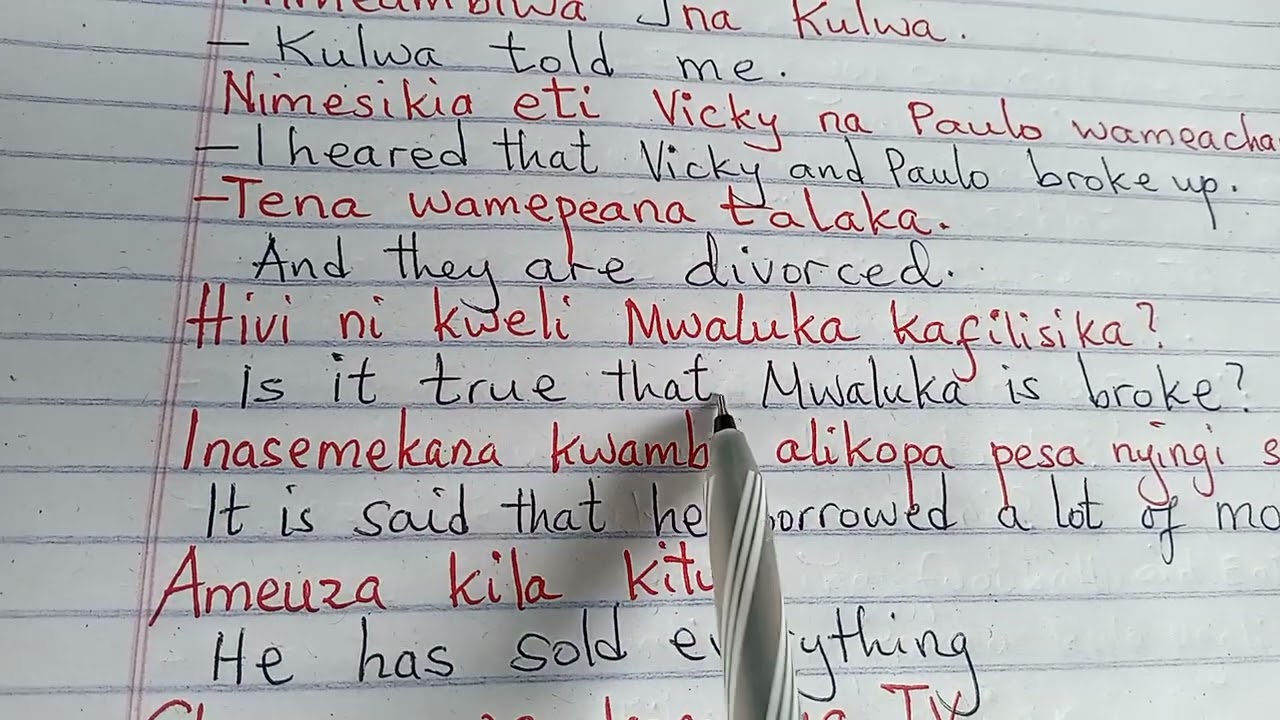 na Kulwa.
- Kulwa told me.
Nimesikia eti Vicky na Paulo wameacha
- I heared that Vicky and Paulo broke up.
- Tena wamepeana talaka.
And they are divorced.
Hivi ni kweli Mwaluka kafilisika?
is it true that Mwaluka is broke?
Inasemekana kwamb alikopa pesa nyingi s
It is said that he borrowed a lot of mo
Ameuza kila kitu
He has sold everything